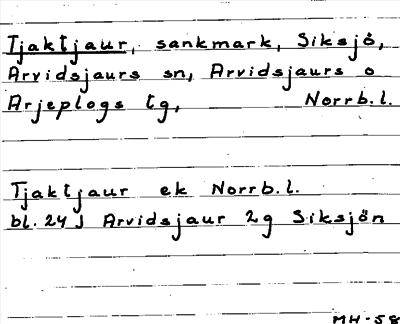 Tjaktjaur, sankmark, Siksjö,
Arvidsjaurs sn, Arvidsjaurs o
Arjeplogs tg, Norrb.l.
Tjaktjaur ek Norrb.l.
bl. 24 J Arvidsjaur 2g Siksjön
MH-58